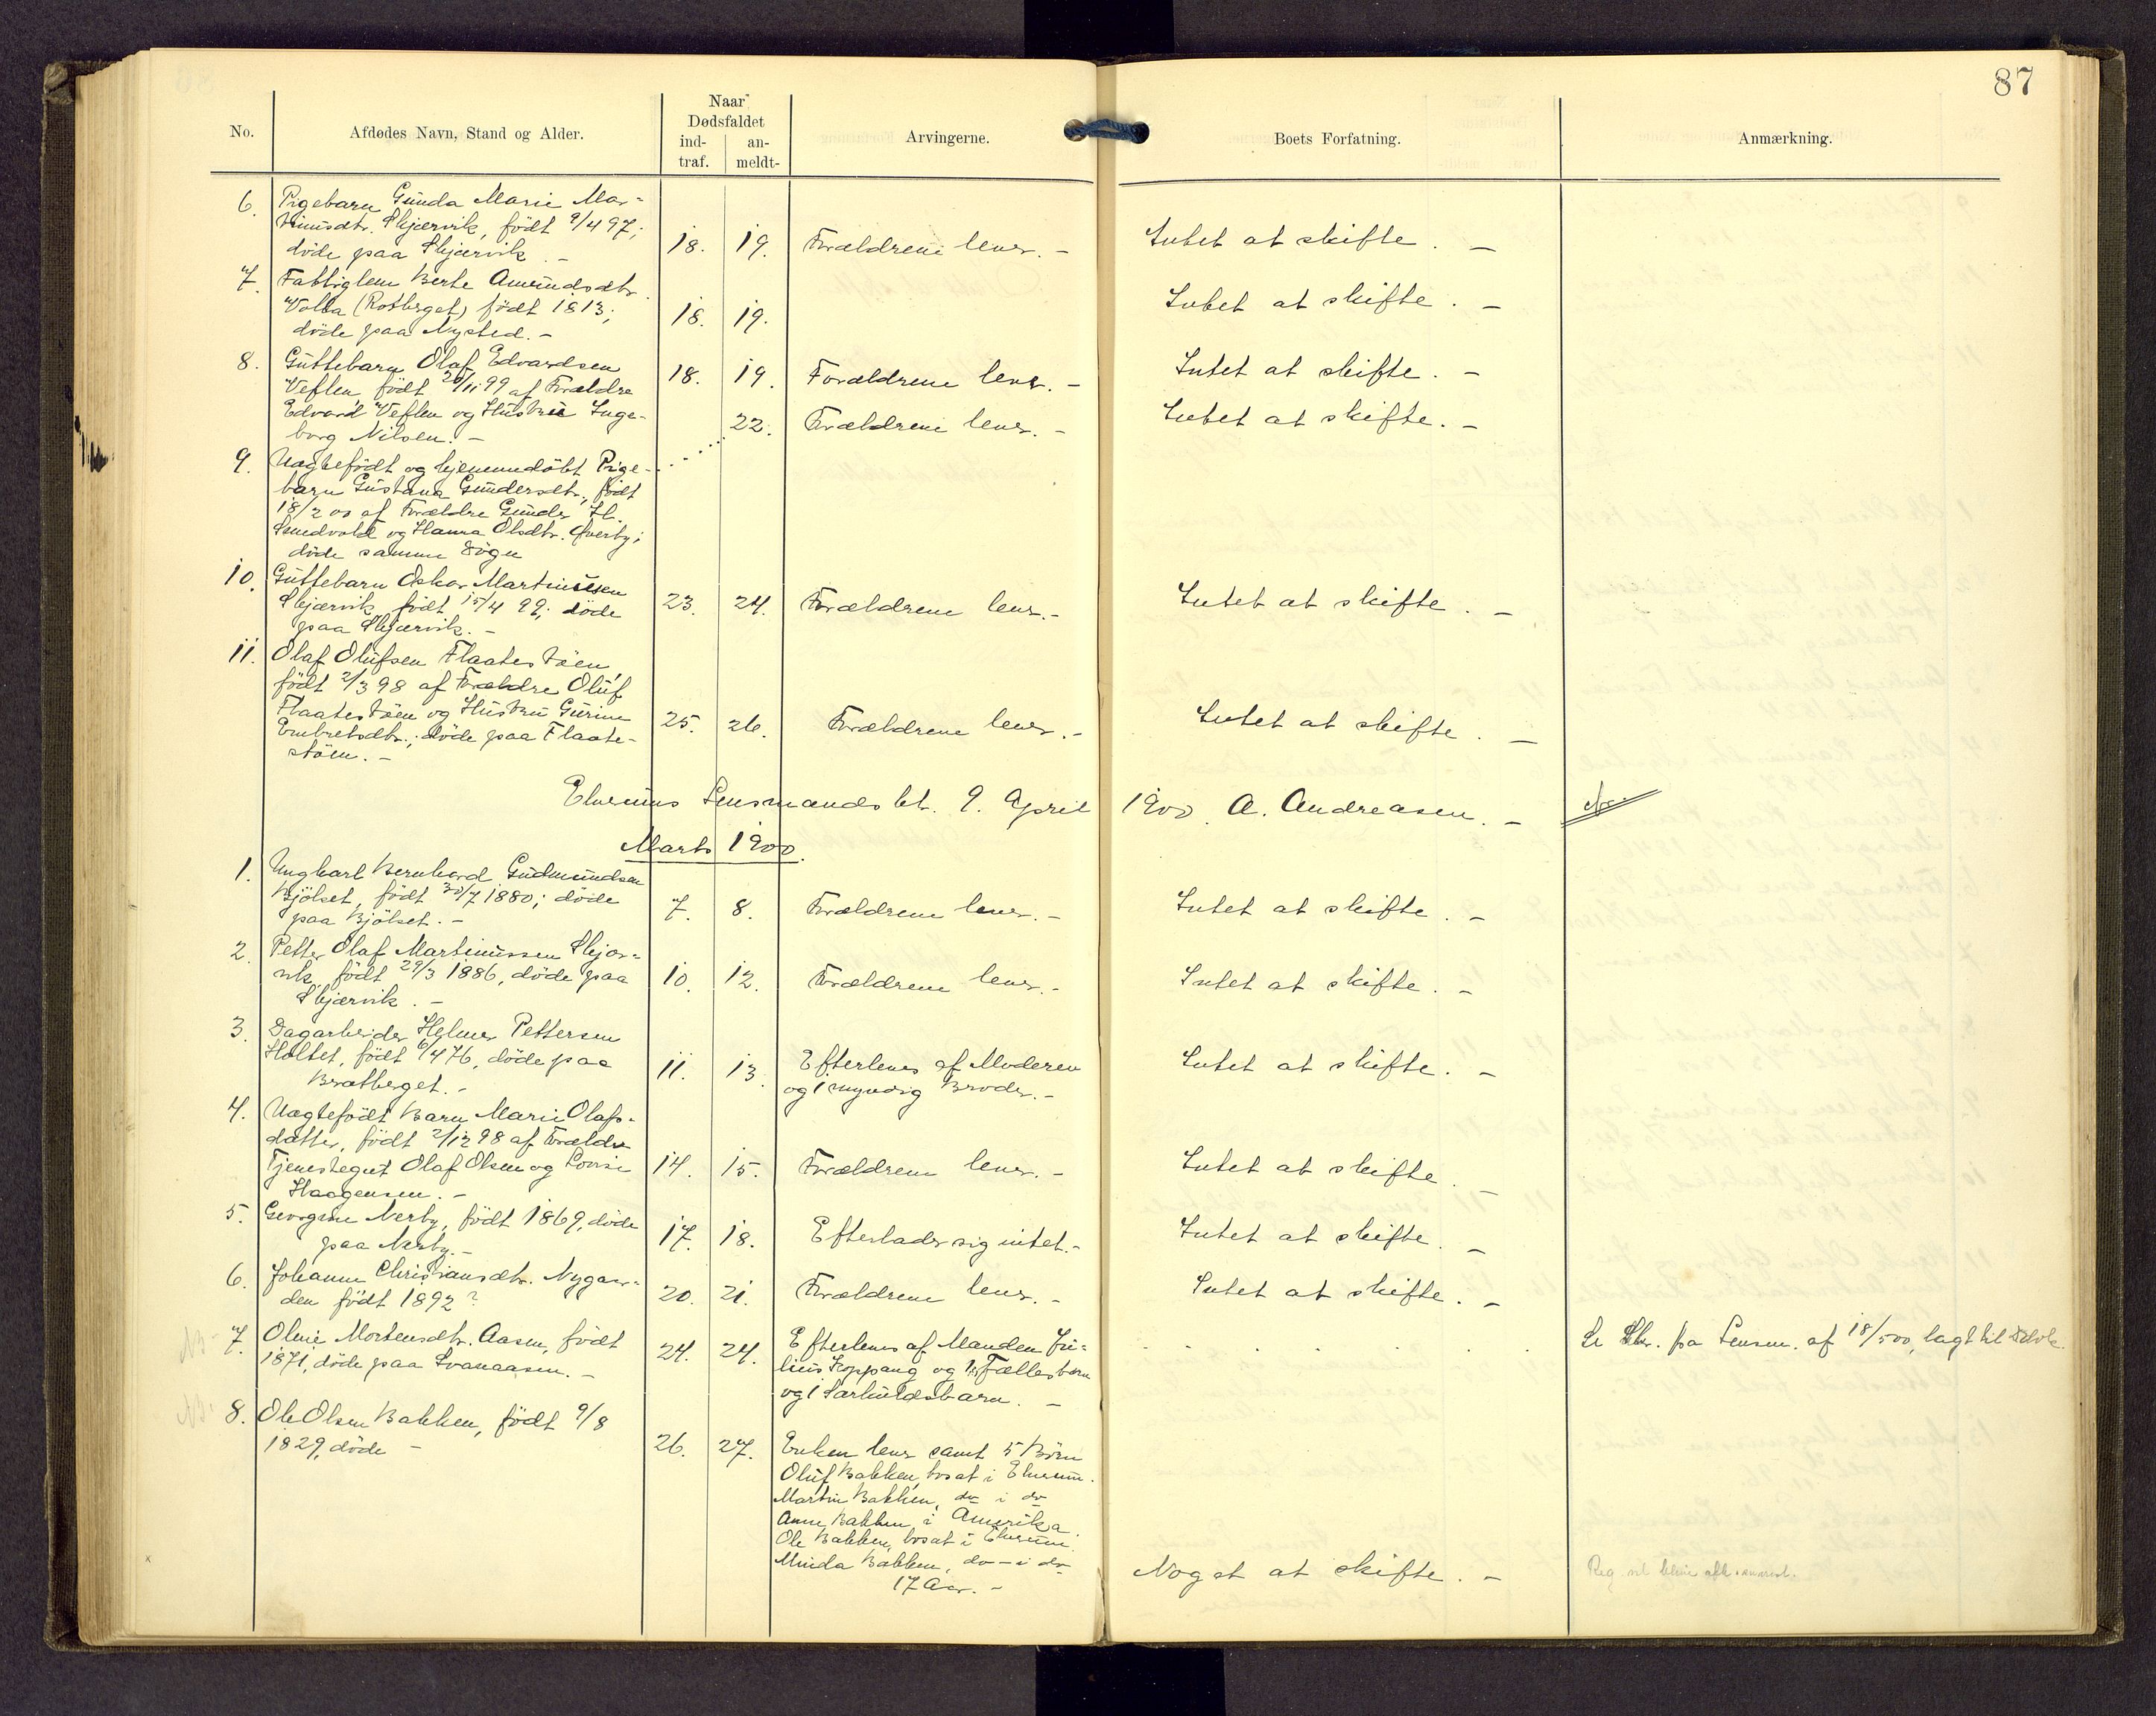 87
No.
Afdødes Navn, Stand og Alder.
Naar
Dødsfaldet
ind-
traf.
an-
meldt-
Arvingerne.
Boets Forfatning.
Anmærkning.
6. Pigebarn Gunda Marie Mar-
tinusdtr. Skjærvik, født 9/4 97;
døde paa Skjærvik. - 18. 19. Forældrene lever. - Intet at skifte. -
7. Fattiglem Berte Amundsdtr.
Volla (Rotberget) født 1813;
døde paa Nysted. - 18. 19. Intet at skifte. -
8. Guttebarn Olaf Edvardsen
Veflen, født 20/11 99 af Forældre 18. 19. Forældrene lever. - Intet at skifte. -
Edvard Veflen og Hustru Inge-
borg Nilsen. - 22. Forældrene lever. - Intet at skifte. -
9. Uægtefødt og hjemmedøbt Pige-
barn Gustava Gundersdtr., født
18/2 00 af Forældre Gunder H.
Smedvold og Hanna Olsdtr. Øverby;
døde samme Døgn
10. Guttebarn Oskar Martinusen
Skjærvik, født 15/4 99; døde 23. 24. Forældrene lever. - Intet at skifte. -
paa Skjærvik. -
11. Olaf Olufsen Flaatestøen,
født 2/3 98 af Forældre Oluf
Flaatestøen og Hustru Gurine 25. 26. Forældrene lever. - Intet at skifte. -
Embretsdtr.; døde paa Flaate-
støen. -
Elverums Lensmandsbt. 9. April 1900. A. Andreasen. -
Marts 1900.
1. Ungkarl Bernhard Gudmundsen
Bjølset, født 30/7 1880; døde 7. 8. Forældrene lever. - Intet at skifte. -
paa Bjølset. -
2. Petter Olaf Martinussen Skjær-
vik, født 29/3 1886, døde paa 10. 12. Forældrene lever. - Intet at skifte. -
Skjærvik. -
3. Dagarbeider Helmer Pettersen
Holtet, født 6/4 76, døde paa 11. 13. Efterleves af Moderen Intet at skifte. -
Bratberget. - og 1 myndig Broder. -
4. Uægtefødt Barn Marie Olafs-
datter, født 2/12 98 af Forældre
Tjenestegut Olaf Olsen og Lovise 14. 15. Forældrene lever. - Intet at skifte. -
Haagensen. -
5. Georgine Nerby, født 1869, døde
paa Nerby. - 17. 18. Efterlader sig intet. - Intet at skifte. -
6. Johanne Christiansdtr. Nygaar-
den født 1892? 20. 21. Forældrene lever. - Intet at skifte. -
NB 7. Oline Mortensdtr. Aasen, født 24. 24. Efterleves af Manden Ju- Se Skr. fra Lensm. af 18/5 00, lagt til
1871, døde paa Svanaasen. - lius Koppang og Fællesbarn
og 1 Særkuldsbarn. -
NB. 8. Ole Olsen Bakken, født 9/8
1829, døde - 26. 27. Enken lever samt 5 Børn
Oluf Bakken, bosat i Elverum.
Martin Bakken, do i do
Anne Bakken, i Amerika.
Ole Bakken, bosat i Elverum.
Minda Bakken, do - i do
17 Aar. - Noget at skifte. -